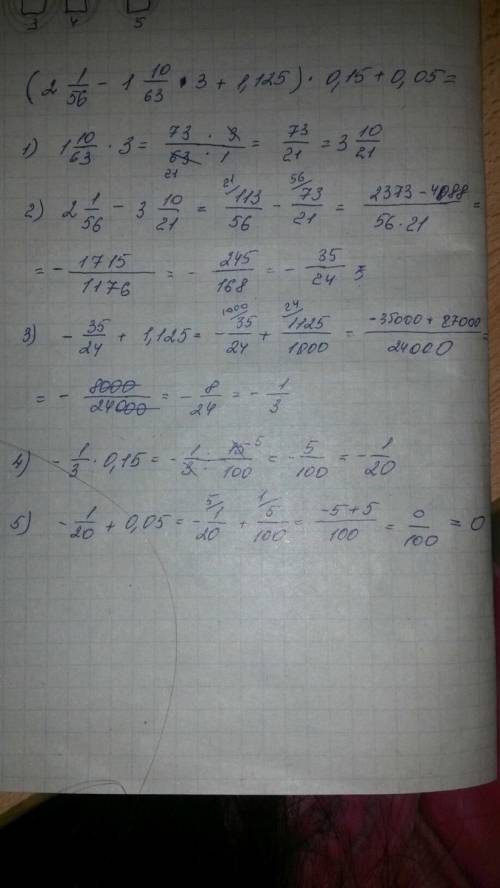 3 4 5
(2 1/56 - 1 10/63 · 3 + 1,125) · 0,15 + 0,05 =
1) 1 10/63 · 3 = (73 · 3)/(63 · 1) = 73/21 = 3 10/21
21
2) 2 1/56 - 3 10/21 = 21/ 113/56 - 56/ 73/21 = (2373 - 4088)/(56·21) =
= - 1715/1176 = - 245/168 = - 35/24
3) - 35/24 + 1,125 = 1000/ - 35/24 + 24/ 1125/1000 = (-35000 + 27000)/24000 =
= - 8000/24000 = - 8/24 = - 1/3
4) - 1/3 · 0,15 = - 1/3 · 15/100 - 5 = - 5/100 = - 1/20
5) - 1/20 + 0,05 = - 5/ 1/20 + 1/ 5/100 = (-5 + 5)/100 = 0/100 = 0